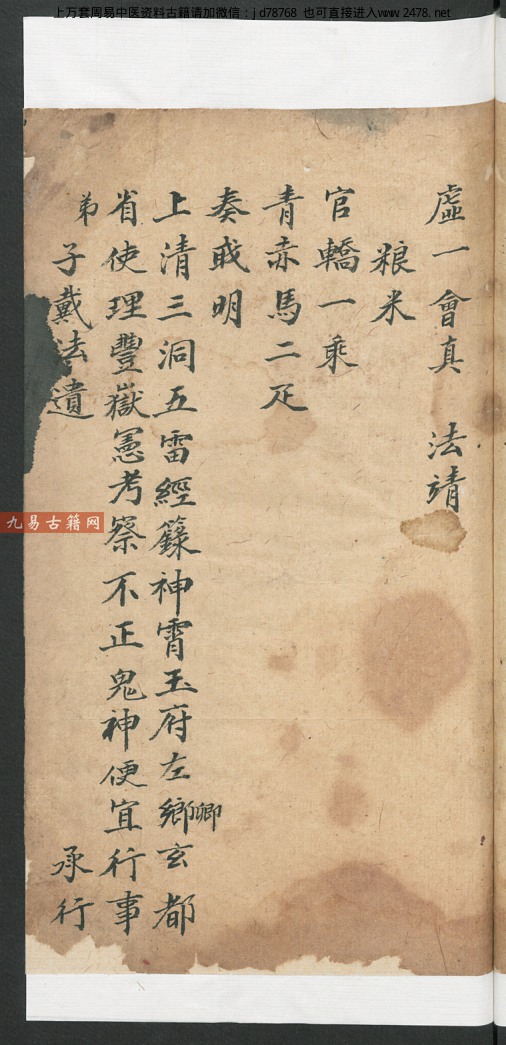 上万套周易中医资料古籍请加微信：jd78768 也可直接进入www.2478.net
虛一會真 法靖
粮米
官轎一乘
青赤馬二疋
奏戓明
上清三洞五雷經籙神霄玉府左鄉卿玄都
省使理豐嶽憲考察不正鬼神便宜行事
弟子戴法遺 承行
九易古籍网